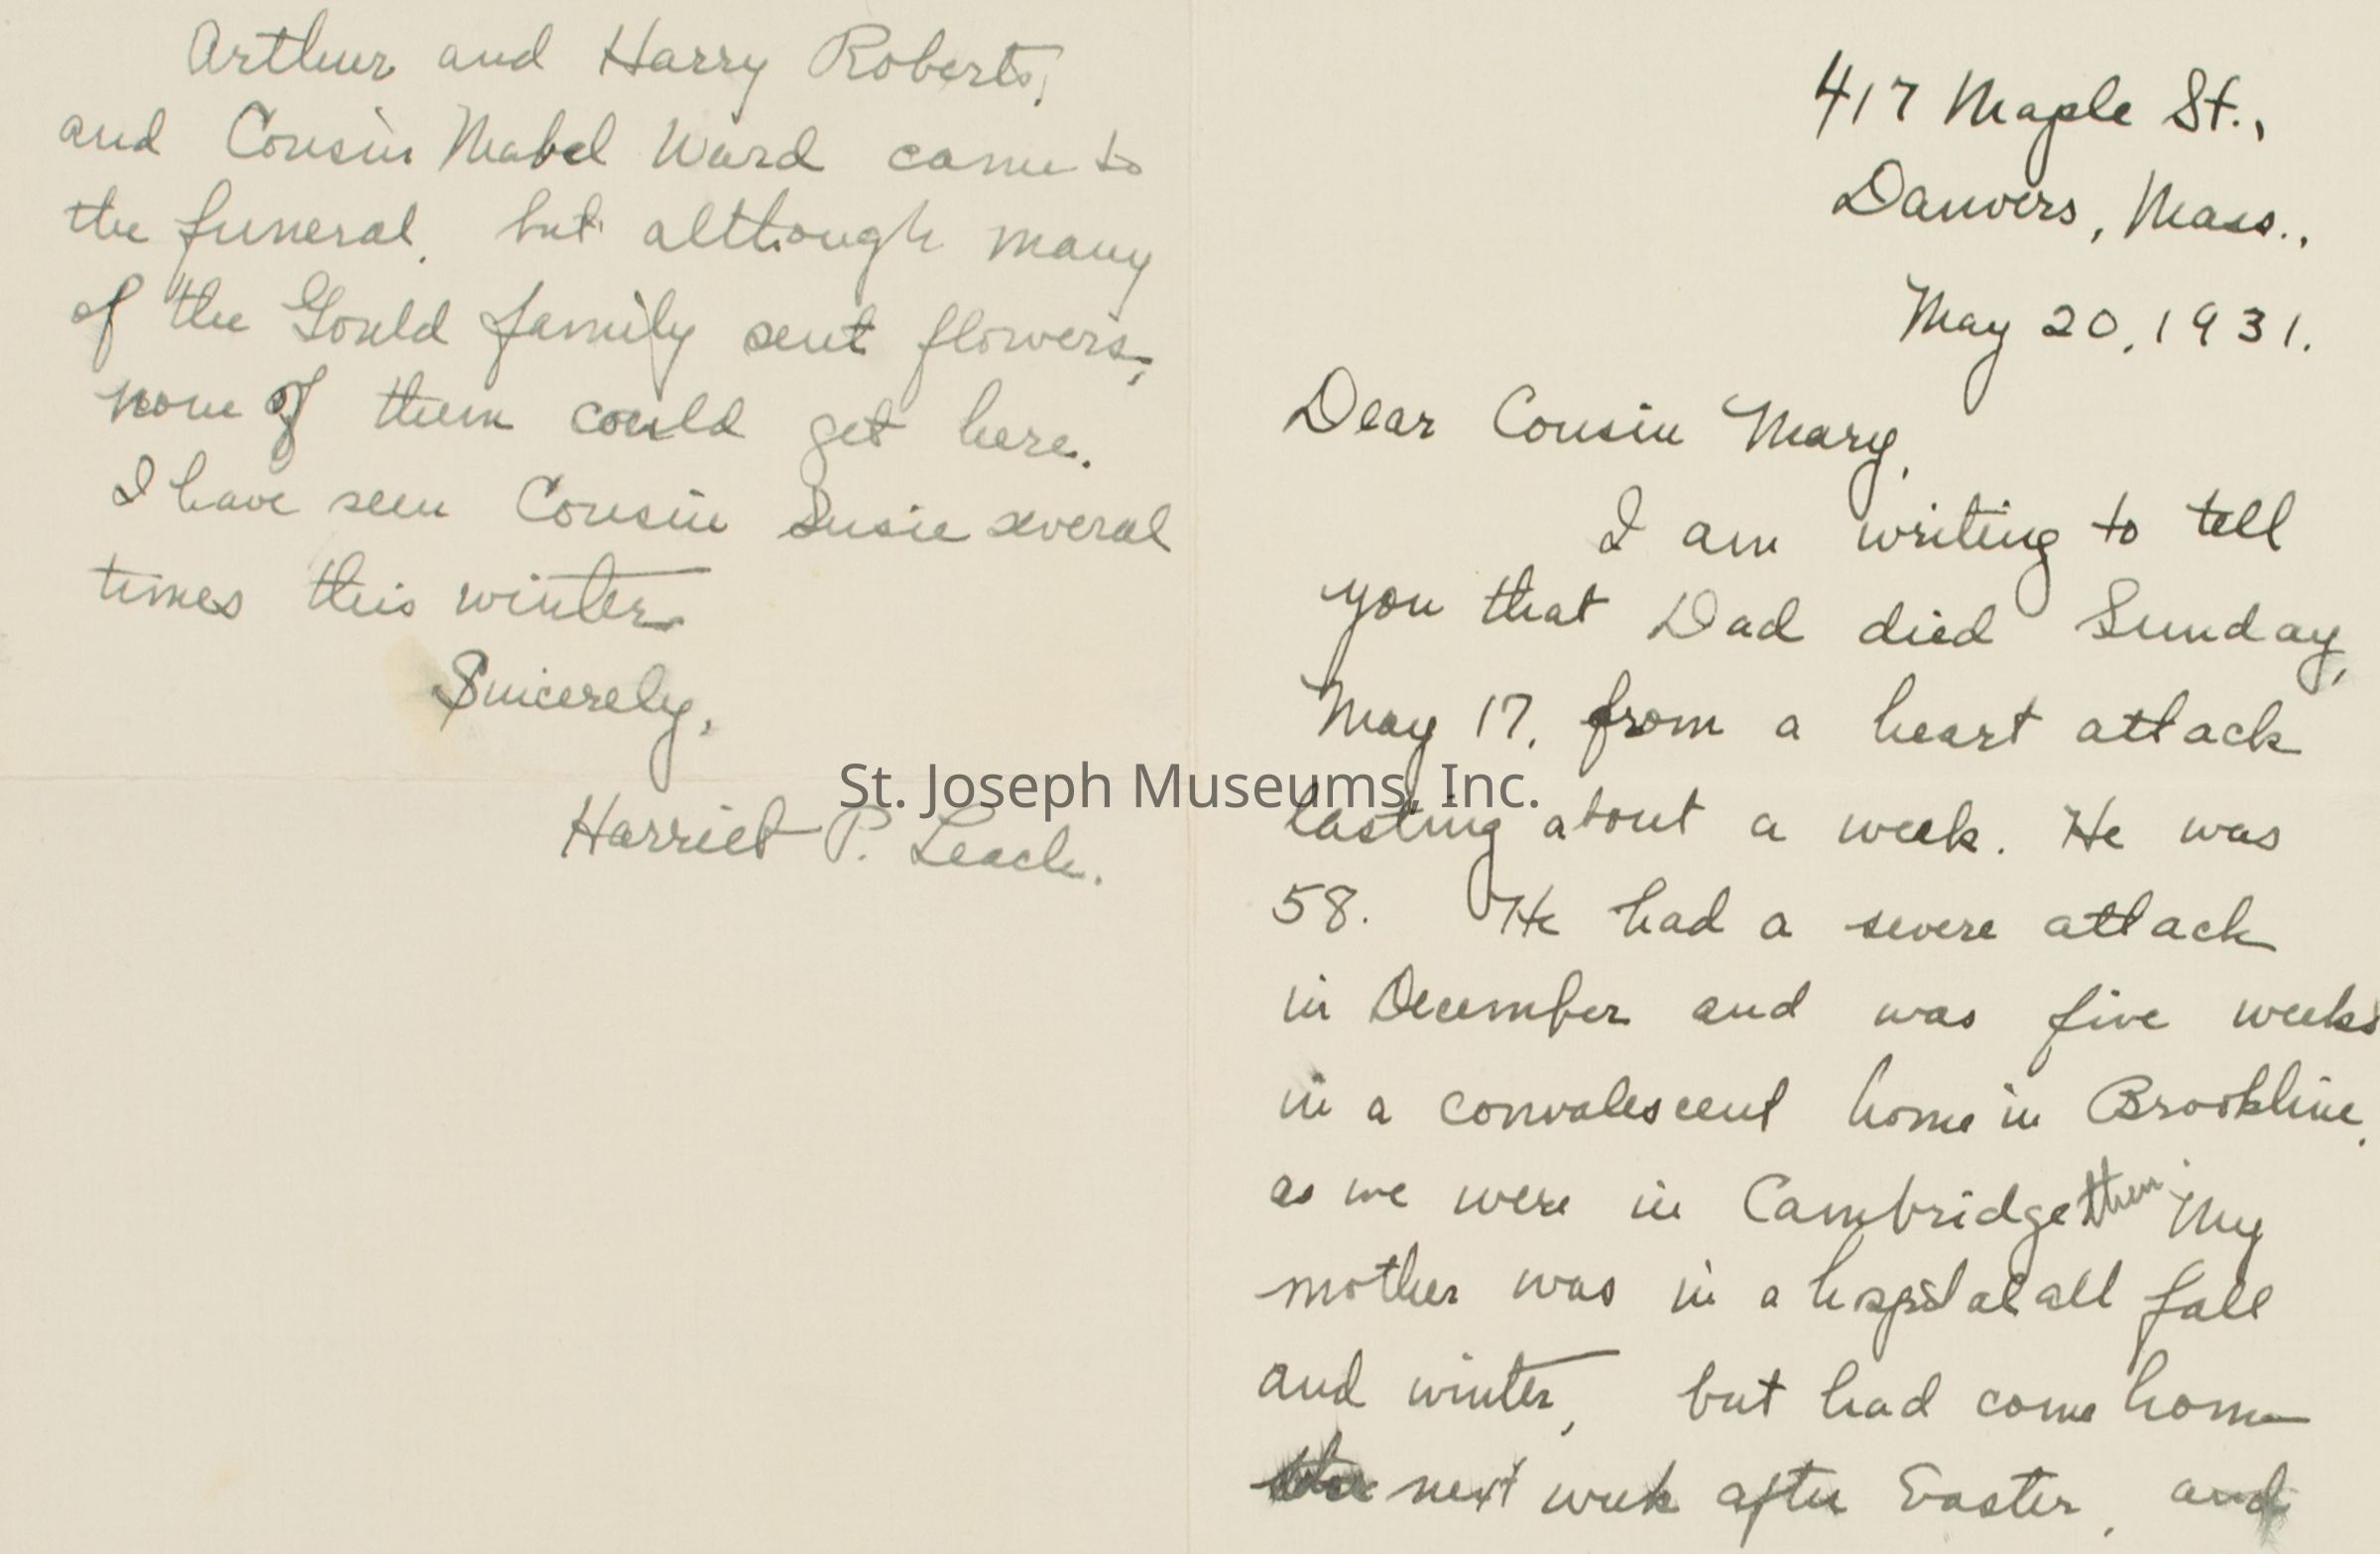 417 Maple St.,
Danvers, Mass.,
May 20, 1931.
Dear Cousin Mary,
I am writing to tell
you that Dad died Sunday,
May 17, from a heart attack
lasting about a week. He was
58. He had a severe attack
in December and was five weeks
in a convalescent home in Brookline,
as we were in Cambridge then. My
mother was in a hospital all fall
and winter, but had come home
the next week after Easter, and
Arthur and Harry Roberts,
and Cousin Mabel Ward came to
the funeral, but although many
of the Gould family sent flowers,
none of them could get here.
I have seen Cousin Susie several
times this winter.
Sincerely,
Harriet P. Leach.
St. Joseph Museums, Inc.